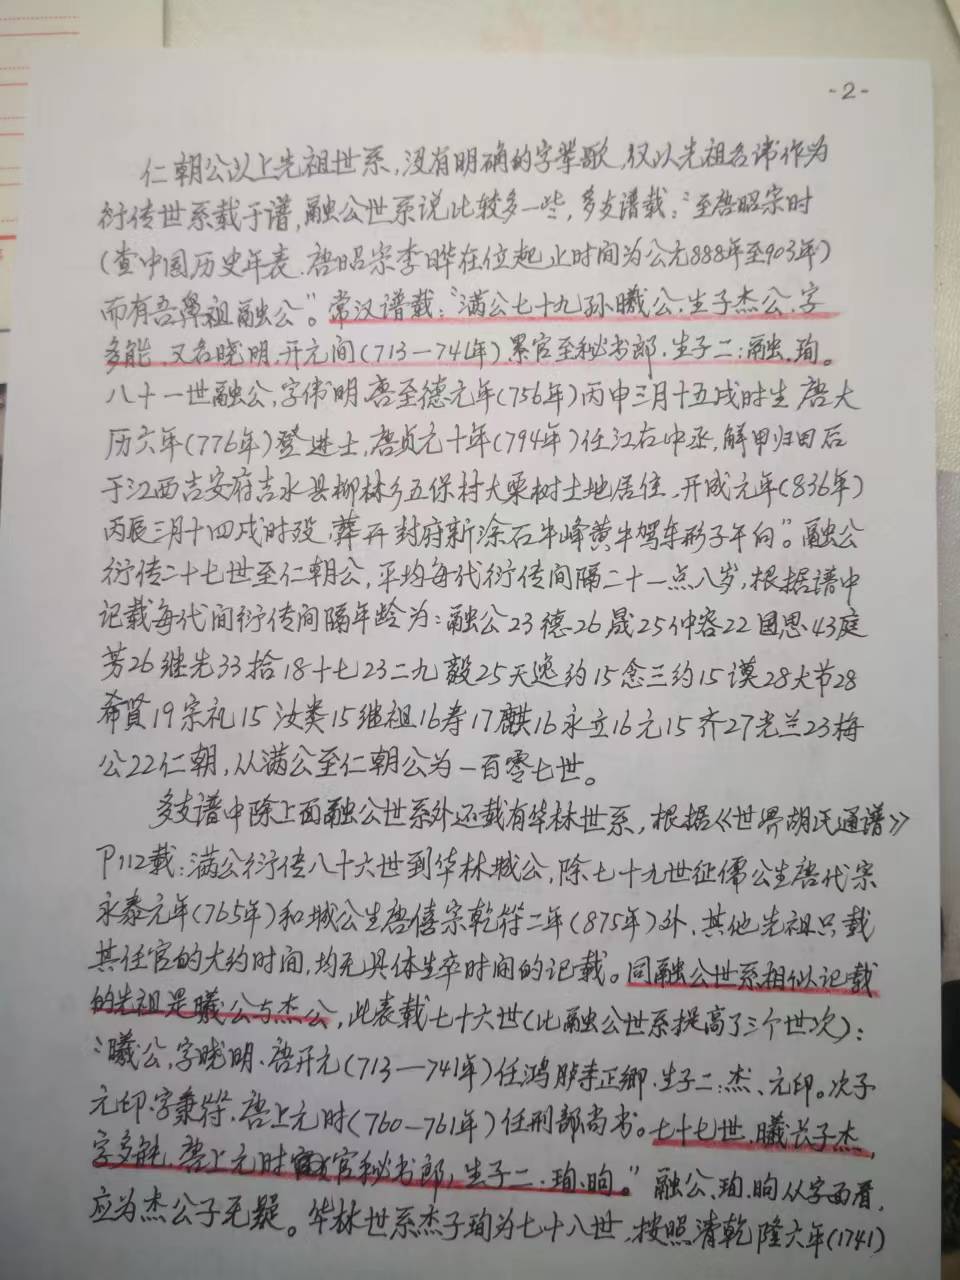 -2-
仁朝公以上先祖世系，没有明确的字辈歌，仅以先祖名讳作为
衍传世系载于谱，融公世系说比较多一些，多支谱载："至唐昭宗时
（查中国历史年表，唐昭宗李晔在位起止时间为公元888年至903年）
而有吾鼻祖融公"。常汉谱载："满公七十九孙曦公，生子杰公，字
多能，又名晓明，开元间（713—741年）累官至秘书郎，生子二：融、珣。
八十一世融公，字伟明，唐至德元年（756年）丙申三月十五戌时生，唐大
历六年（776年）登进士，唐贞元十年（794年）任江右中丞，解甲归田后
于江西吉安府吉水县柳林乡五保村大栗树土地居住，开成元年（836年）
丙辰三月十四戌时殁，葬开封府新淦石牛峰黄牛驾车形子午向"。融公
衍传二十七世至仁朝公，平均每代衍传间隔二十一点八岁，根据谱中
记载每代间衍传间隔年龄为：融公23德26晟25仲容22国思43庭
芳26继先33拾18十七23二九毅25天逸约15念三约15谟28大节28
希贤19宗礼15汝类15继祖16寿17麒16永立16元15齐27光兰23梅
公22仁朝，从满公至仁朝公为一百零七世。
多支谱中除上面融公世系外还载有华林世系，根据《世界胡氏通谱》
P112载：满公衍传八十六世到华林城公，除七十九世征儒公生唐代宗
永泰元年（765年）和城公生唐僖宗乾符二年（875年）外，其他先祖只载
其任官的大约时间，均无具体生卒时间的记载。同融公世系相似记载
的先祖是曦公与杰公，此表载七十六世（比融公世系提高了三个世次）：
"曦公，字晓明，唐开元（713—741年）任鸿胪寺正卿，生子二：杰、元印。次子
元印，字秉符，唐上元时（760—761年）任刑部尚书。七十七世，曦长子杰，
字多能，唐上元时官秘书郎，生子二，珣、昫。"融公、珣、昫从字面看，
应为杰公子无疑。华林世系杰子珣为七十八世，按照清乾隆六年（1741）